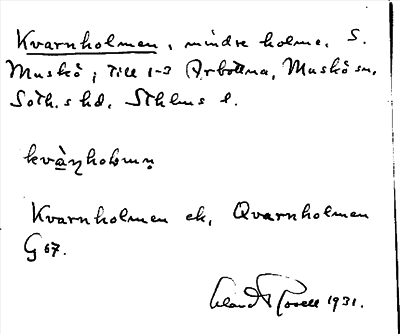 Kvarnholmen, mindre holme, S.
Muskö; till 1-3 Arbottna, Muskö sn,
Soth.s hd, Sthlms l.
kvà̱ɳholmn̥
Kvarnholmen ek, Qvarnholmen
G 67.
Rosell 1931.